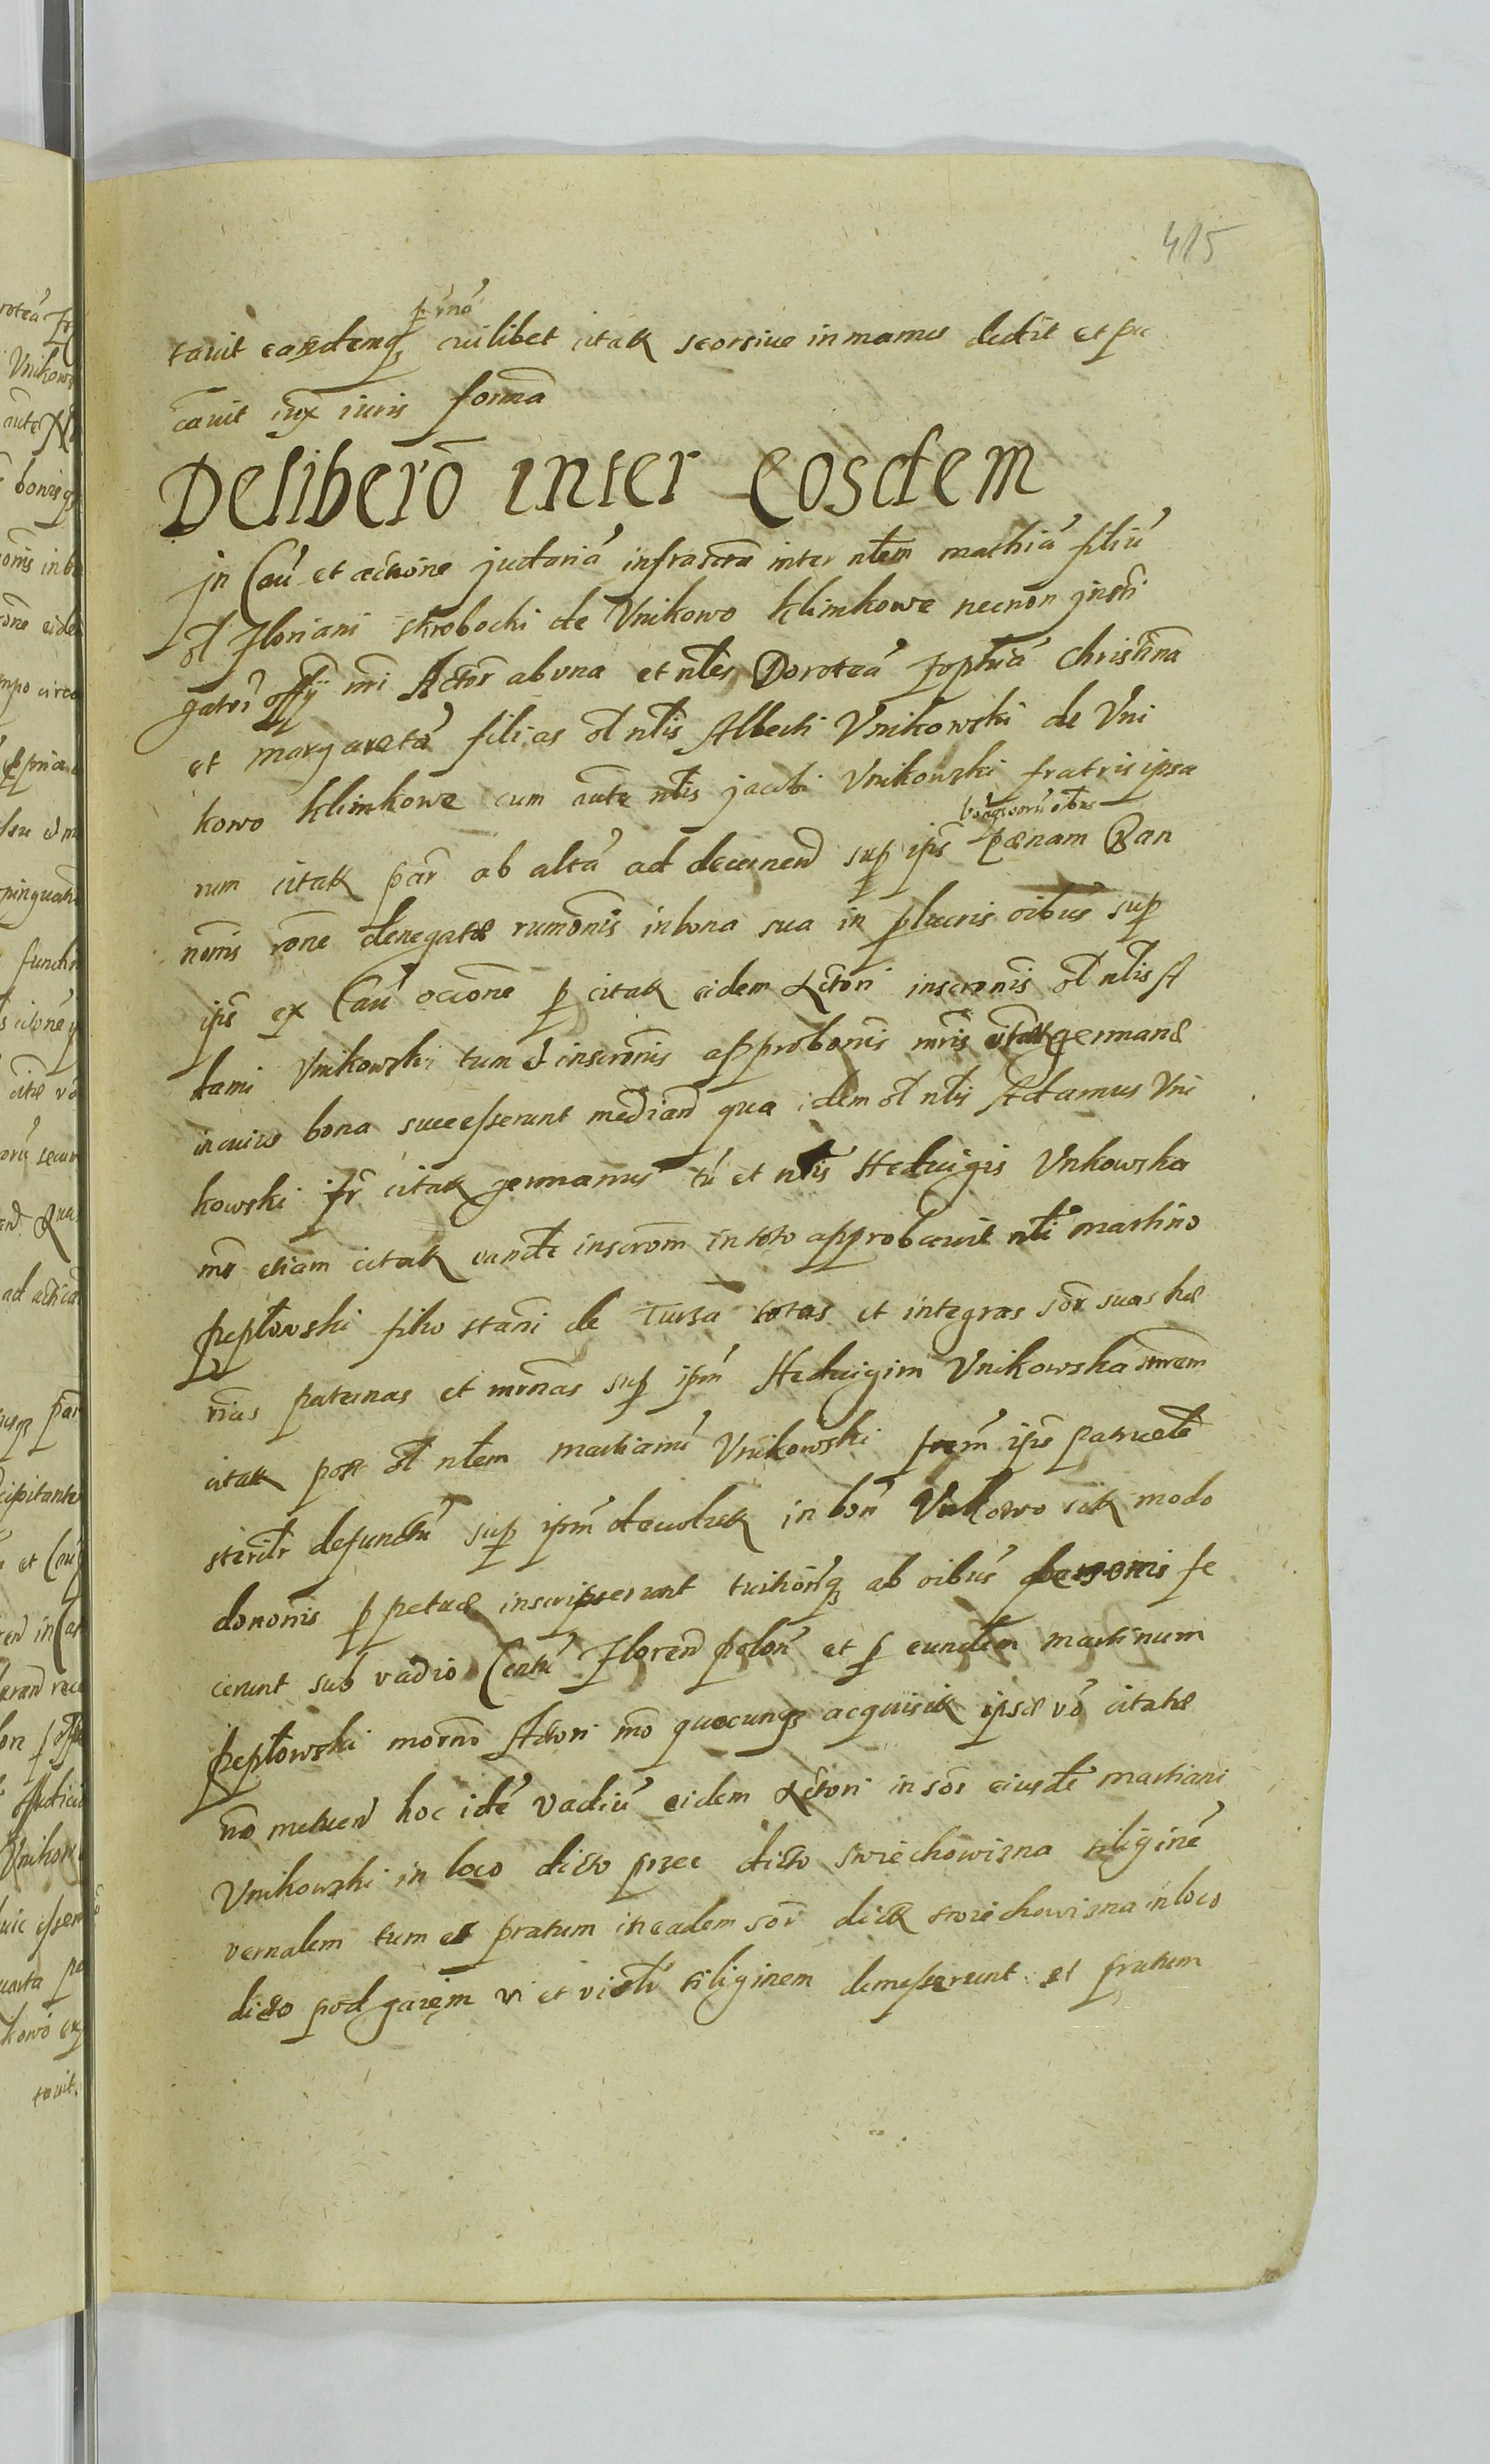 415
tavit eandemq cuilibet citat seorsive in manus dedit et pa
cavit iux iuris forma
Deliberō inter eosdem
Jn Cau et actione judaria infrascra inter nlem mathiā filiū
ol Floriani skrobocki de Vnikowo klimkowe necnon jnsti
gator offy nri Actor ab una et nles Doroteā Zophiā Christina
et margaretā filias ol nlis Alberti Vnikowski de Vni
kowo klimkowe cum aute nlis jacobi Vnikowski fratris ipsa
rum citat par ab altā ad decernend sup ips pænam Ban
nonis rone denegatæ rumonis in bona sua in plucris oibus sup
ips ex Cau occone p citat eidem Actori inscronis ol nlis A
dami Vnikowski tum et inscronis approbonis mris citat germanæ
in cuius bona successerunt mediand qua idem ol nlis Adamus Vni
kowski fr citat germanus tū et nlis Heduigis Vnkowska
mr etiam citat eande inscrom in toto approbavit nli martino
peplowski filio stani de Tursa totas et integras sor suas hæ
rias paternas et mrnas sup ipm Heduigim Vnikowska mrem
citat post ol nlem martianū Vnikowski frem ips patruele
sterilr defunctū sup ipm devolut in bon Vnkowo sit modo
dononis p petuæ inscripserunt tuitionq ab oibus personis fe
cerunt sub vadio Centū Floren polon et p eundem martinum
peplowski morno Actori mo quocunq acquisit ipsæ vo citatæ
no metuen hoc idē vadiū eidem Actori in sor eiusde martiani
Vnikowski in loco dicto przec dicto swiechowizna siliginē
vernalem tum et pratum in eadem sor dict swiechowizna in loco
dicto pod gaięm vi et viol siliginem demesserunt et pratum